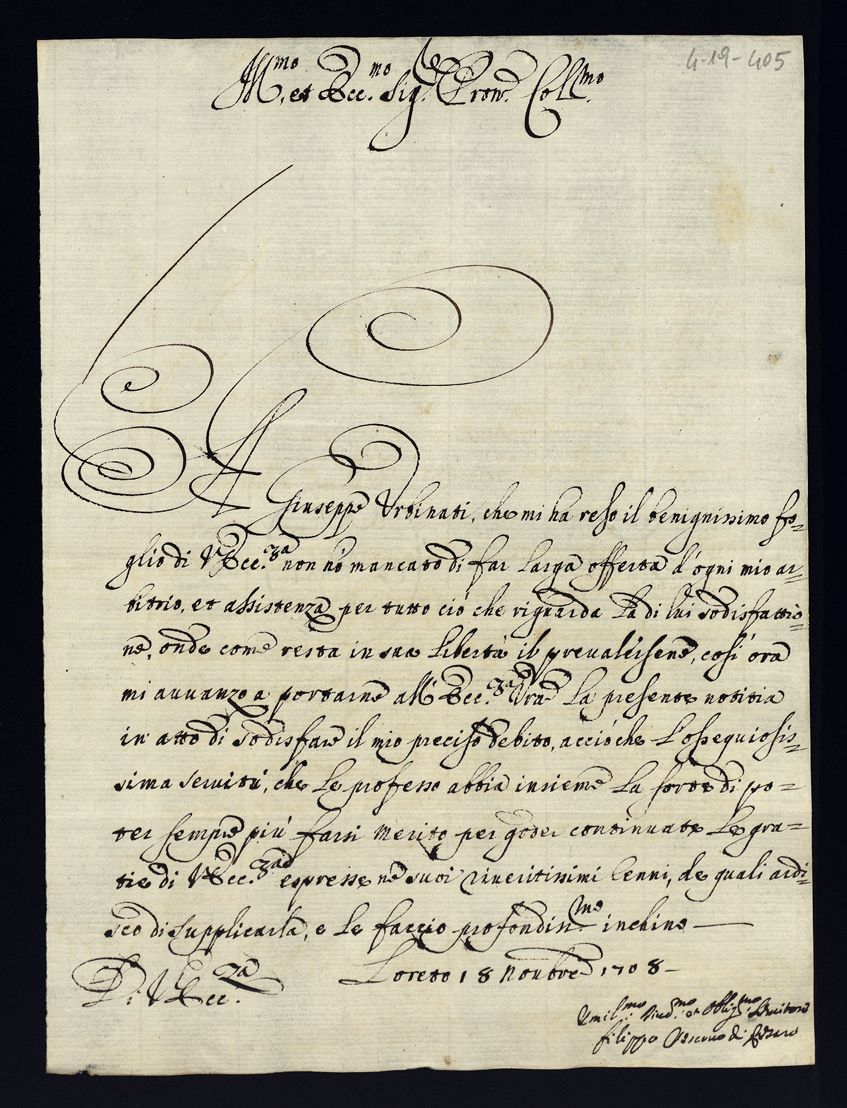 4-19-405
Ill.mo et Ecc.mo Sig.re Pron.e Coll.mo
A Giuseppe Urbinati, che mi ha reso il benignissimo fo=
glio di V. Ecc.za non hò mancato di far larga offerta d'ogni mio ar=
bitrio, et assistenza per tutto ciò che riguarda la di lui sodisfattio=
ne, onde come resta in sua libertà il prevalersene, così ora
mi avvanzo a portarne all' Ecc.za Vra la presente notitia
in atto di sodisfare il mio preciso debito, acciò che l'ossequiosis=
sima servitù, che le professo abbia insieme la sorte di po=
ter sempre più farsi merito per goder continuate le gra=
tie di V. Ecc.za espresse ne suoi riveritissimi Cenni, de quali ardi=
sco di supplicarla, e le faccio profondiss.mo inchino —
Di V. Ecc.za Loreto 18 Novbre 1708 –
Umil.mo Div.mo et Obblig.mo Servitore
Filippo Vescovo di